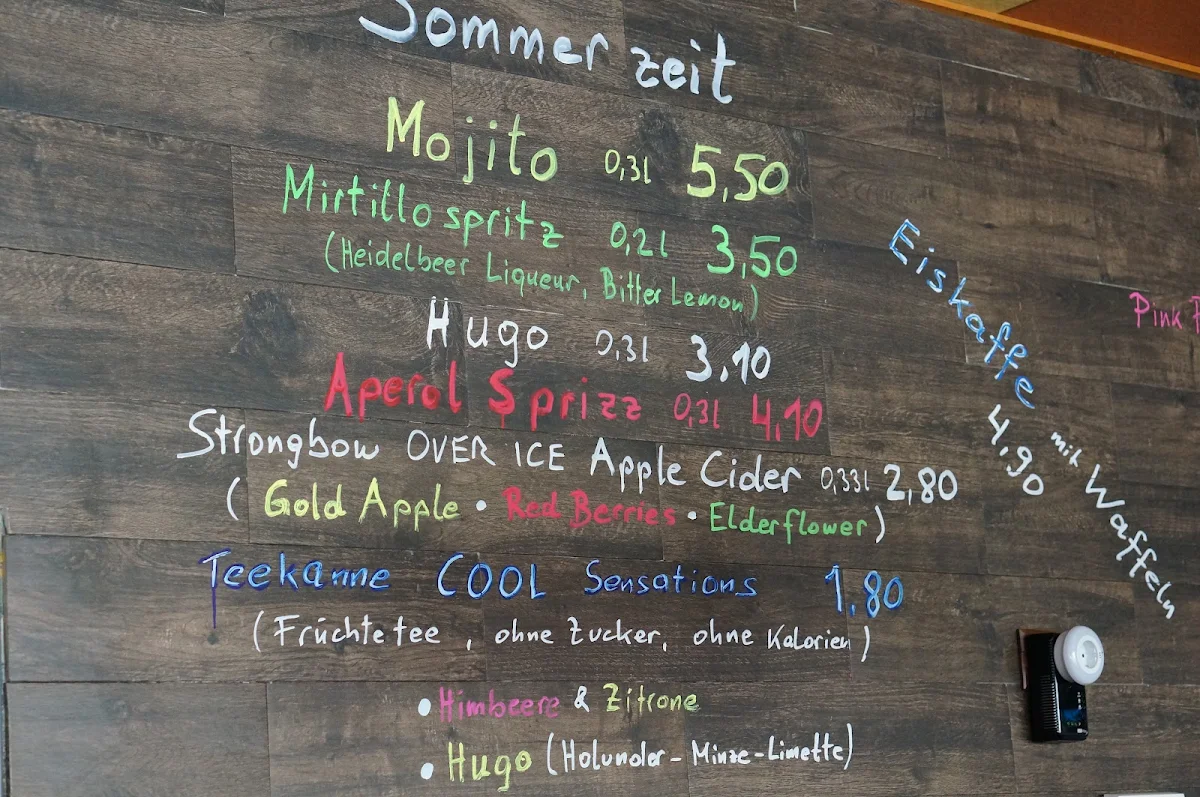 Sommerzeit
Mojito 0,3l 5,50
Mirtillo spritz 0,2l 3,50
(Heidelbeer Liqueur, Bitter Lemon)
Hugo 0,3l 3,10
Aperol Sprizz 0,3l 4,10
Strongbow OVER ICE Apple Cider 0,33l 2,80
(Gold Apple • Red Berries • Elderflower)
Teekanne COOL Sensations 1,80
(Früchtetee, ohne Zucker, ohne Kalorien)
• Himbeere & Zitrone
• Hugo (Holunder-Minze-Limette)
Eiskaffe
4,90
mit Waffeln
Pink